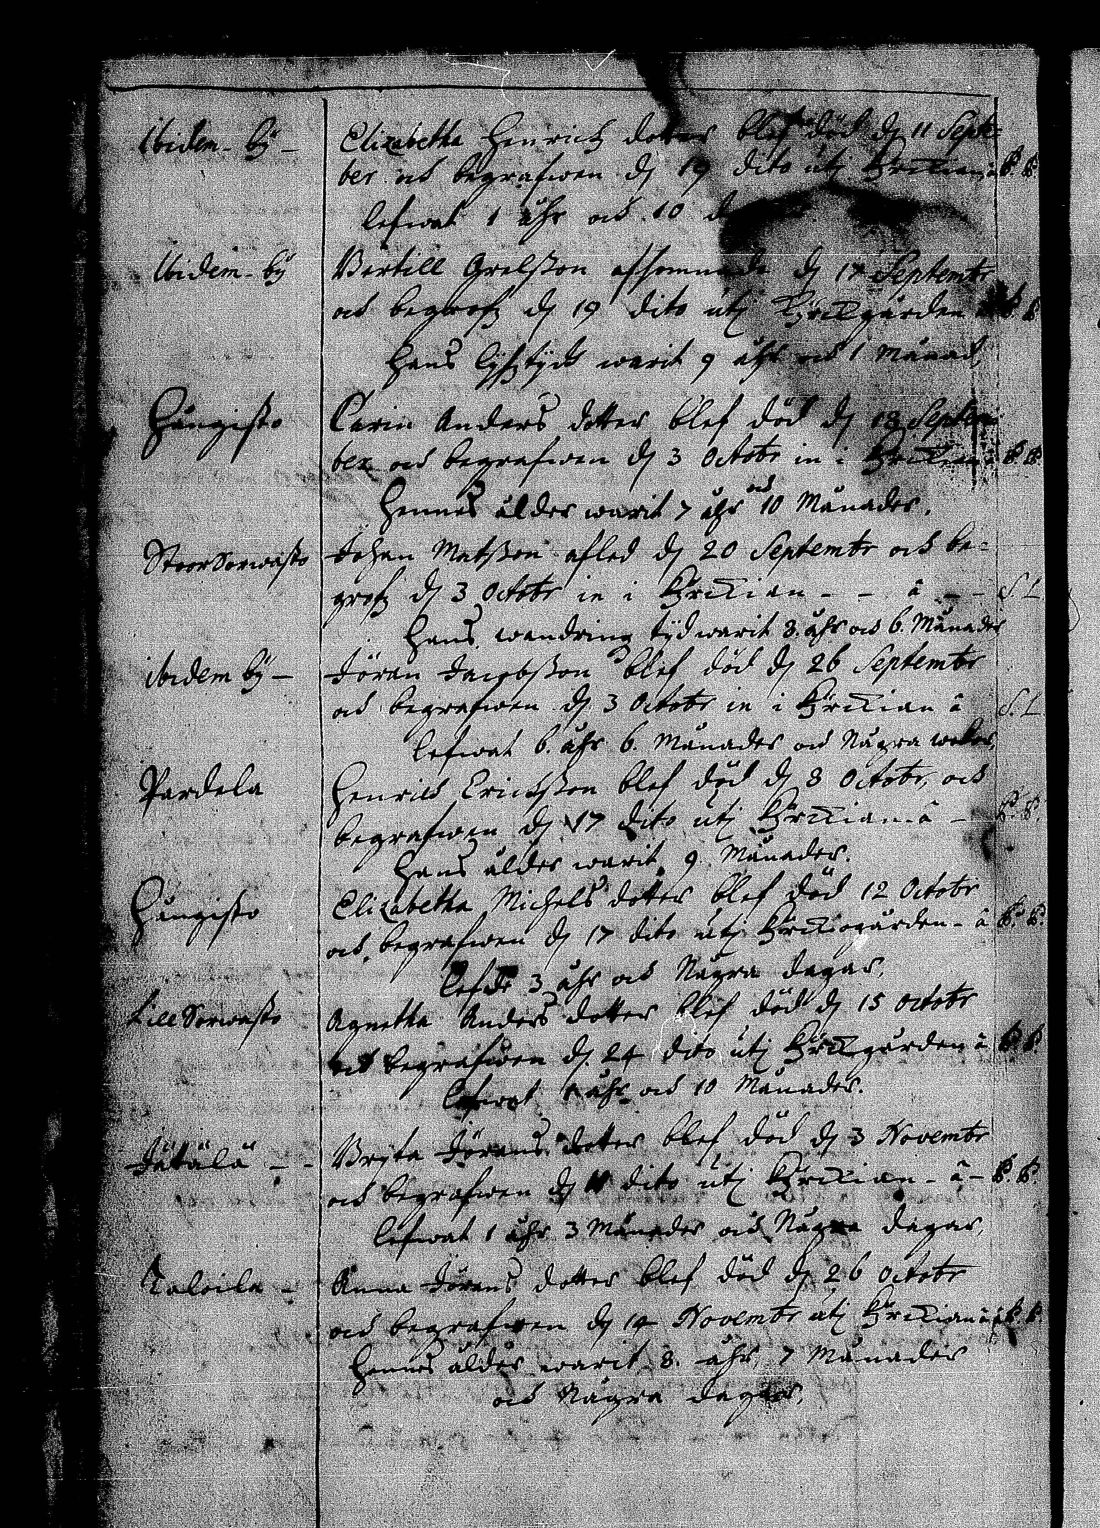 Ibidem - by - Elizabetha Henrichz dotter blef död dj 11 Septem-
ber och begrafwen dj 19 dito utj Kyrckian å B. B.
lefwat 1 åhr och 10
Ibidem - by Bertill Grelsson afsomnade dj 17 Septembr
och begrofz dj 19 dito utj Kyrckgården å B. B.
Hans lijfztijdh warit 9 åhr och 1 Månad
Hångisto Carin Anders dotter blef död dj 18 Septem
ber och begrafwen dj 3 Octobr in i Kyrckian å B. B.
Hennes ålder warit 7 åhr och 10 Månader.
Stoor Sorwasto Johan Matsson afled dj 20 Septembr och be-
grofz dj 3 Octobr in i Kyrckian - - å - - S. L.
Hans wandring tijd warit 3. åhr och 6. Månader
ibidem by - Jöran Jacobsson blef död dj 26 Septembr
och begrafwen dj 3 Octobr in i Kyrckian å S. L.
lefwat 6. åhr 6. Månader och Några wekor,
Pardela Henrich Erichsson blef död dj 8 Octobr, och
begrafwen dj 17 dito utj Kyrckian - å - B. B.
Hans ålder warit 9. Månader.
Hångisto Elizabetha Michels dotter blef död 12 Octobr
och begrafwen dj 17 dito utj Kyrckiogården - å B. B.
lefde 3 åhr och Några dagar,
Lill Sorwasto Agnetha Anders dotter blef död dj 15 Octobr
och begrafwen dj 24 dito utj Kyrckgården å B. B.
lefwat 1 åhr och 10 Månader.
Jätälä - - Brjta Jörans dotter blef död dj 3 Novembr
och begrafwen dj 11 dito utj Kyrckian - å - B. B.
lefwat 1 åhr 3 Månader och Några dagar,
Taloila - Anna Jörans dotter blef död dj 26 Octobr
och begrafwen dj 14 Novembr utj Kyrckian å B. B.
Hennes ålder warit 8. åhr 7 Månader
och Några dagar,